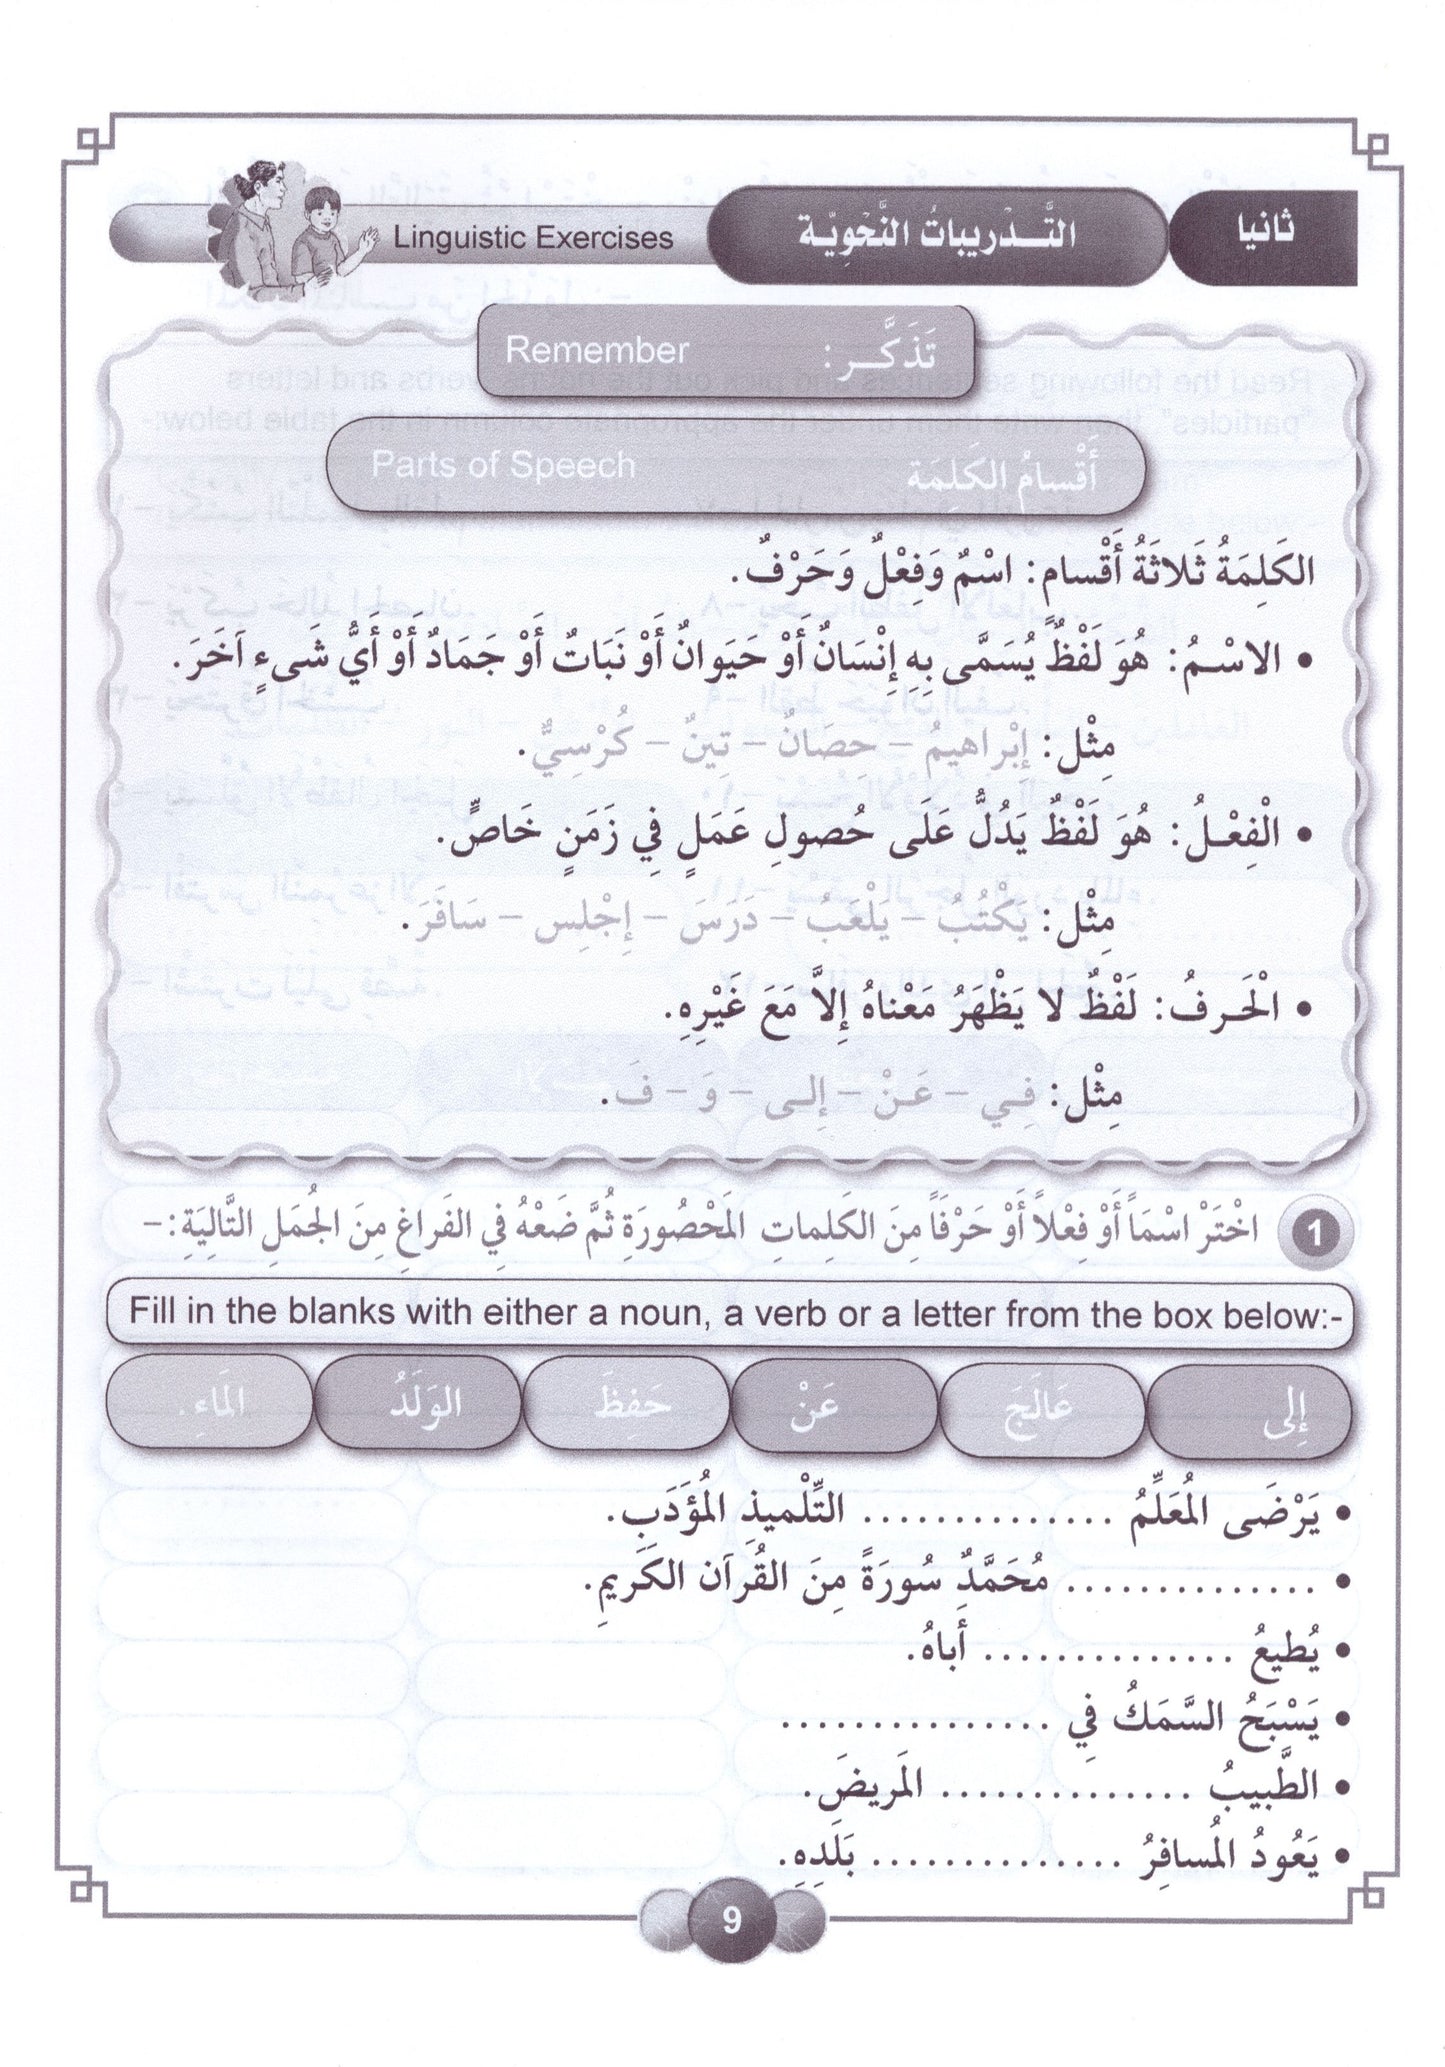 ثانيا
التَّـدْرِيباتُ النَّحْوِيّة
Linguistic Exercises
تَذَكَّـر :
Remember
أَقْسامُ الكَلِمَة
Parts of Speech
الكَلِمَةُ ثَلاثَةُ أَقْسامٍ: اسْمٌ وَفِعْلٌ وَحَرْفٌ.
• الاسْـمُ: هُوَ لَفْظٌ يُسَمَّى بِهِ إِنْسَانٌ أَوْ حَيَوانٌ أَوْ نَبَاتٌ أَوْ جَمَادٌ أَوْ أَيُّ شَىءٍ آخَرَ.
مِثْل: إِبْراهيمُ – حِصَانٌ – تِينٌ – كُرْسِيٌّ.
• الْفِعْـلُ: هُوَ لَفْظٌ يَدُلُّ عَلَى حُصولِ عَمَلٍ فِي زَمَنٍ خَاصٍّ.
مِثْل: يَكْتُبُ – يَلْعَبُ – دَرَسَ – إِجْلِس – سَافَرَ.
• الْحَـرفُ: لَفْظٌ لا يَظْهَرُ مَعْناهُ إِلاَّ مَعَ غَيْرِهِ.
مِثْل: فِـي – عَـنْ – إِلـى – وَ – فَ.
1 اخْتَرْ اسْمَاً أَوْ فِعْلاً أَوْ حَرْفَاً مِنَ الكَلِماتِ المَحْصُورَةِ ثُمَّ ضَعْهُ فِي الفَراغِ مِنَ الجُمَلِ التَّالِيَةِ:-
Fill in the blanks with either a noun, a verb or a letter from the box below:-
إِلى عَالَجَ عَنْ حَفِظَ الوَلَدُ المَاءِ.
• يَرْضَى المُعَلِّمُ .............. التِّلْميذِ المُؤَدَبِ.
• .............. مُحَمَّدٌ سُورَةً مِنَ القُرآن الكَريمِ.
• يُطيعُ .............. أَباهُ.
• يَسْبَحُ السَّمَكُ فِي ...............
• الطَّبيبُ .............. المَريضَ.
• يَعُودُ المُسافِرُ .............. بَلَدِهِ.
9